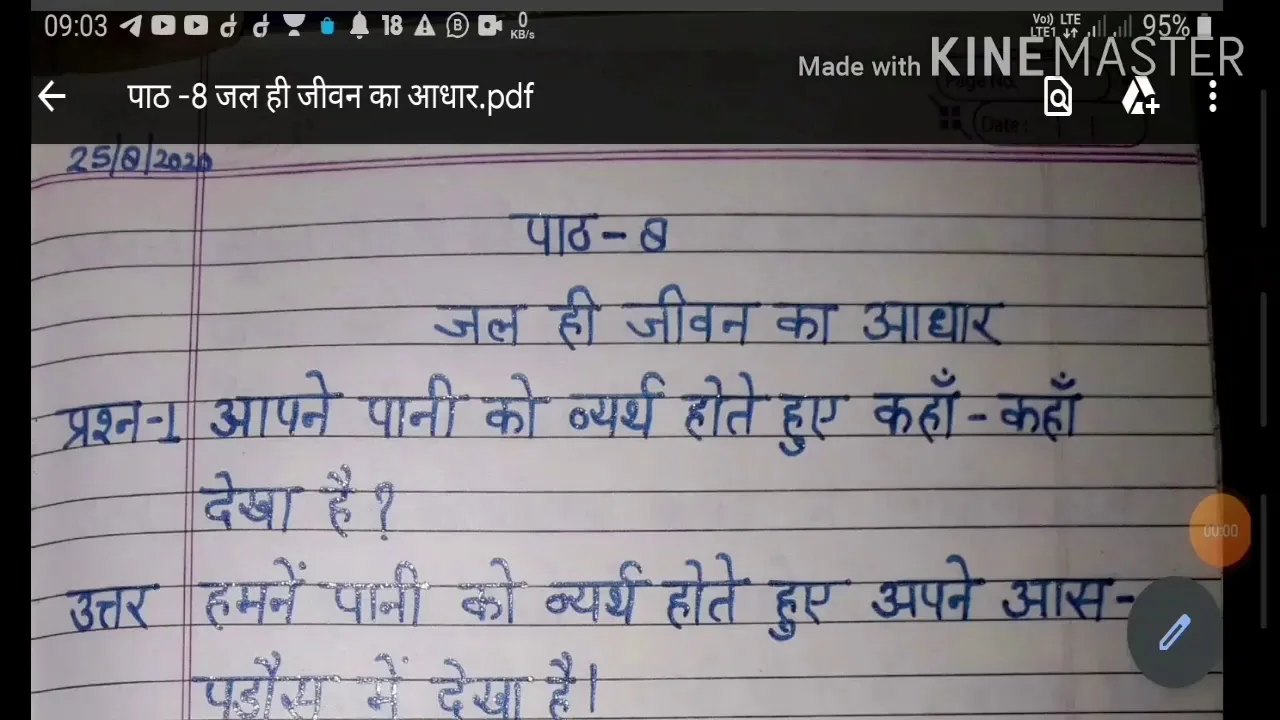 09:03 18 0 KB/s Vo) LTE LTE1 95%
Made with KINEMASTER
पाठ -8 जल ही जीवन का आधार.pdf
Page No.
Date :
25/8/2020
पाठ - 8
जल ही जीवन का आधार
प्रश्न-1 आपने पानी को व्यर्थ होते हुए कहाँ - कहाँ
देखा है ?
00:00
उत्तर हमनें पानी को व्यर्थ होते हुए अपने आस-
पड़ौस में देखा है।